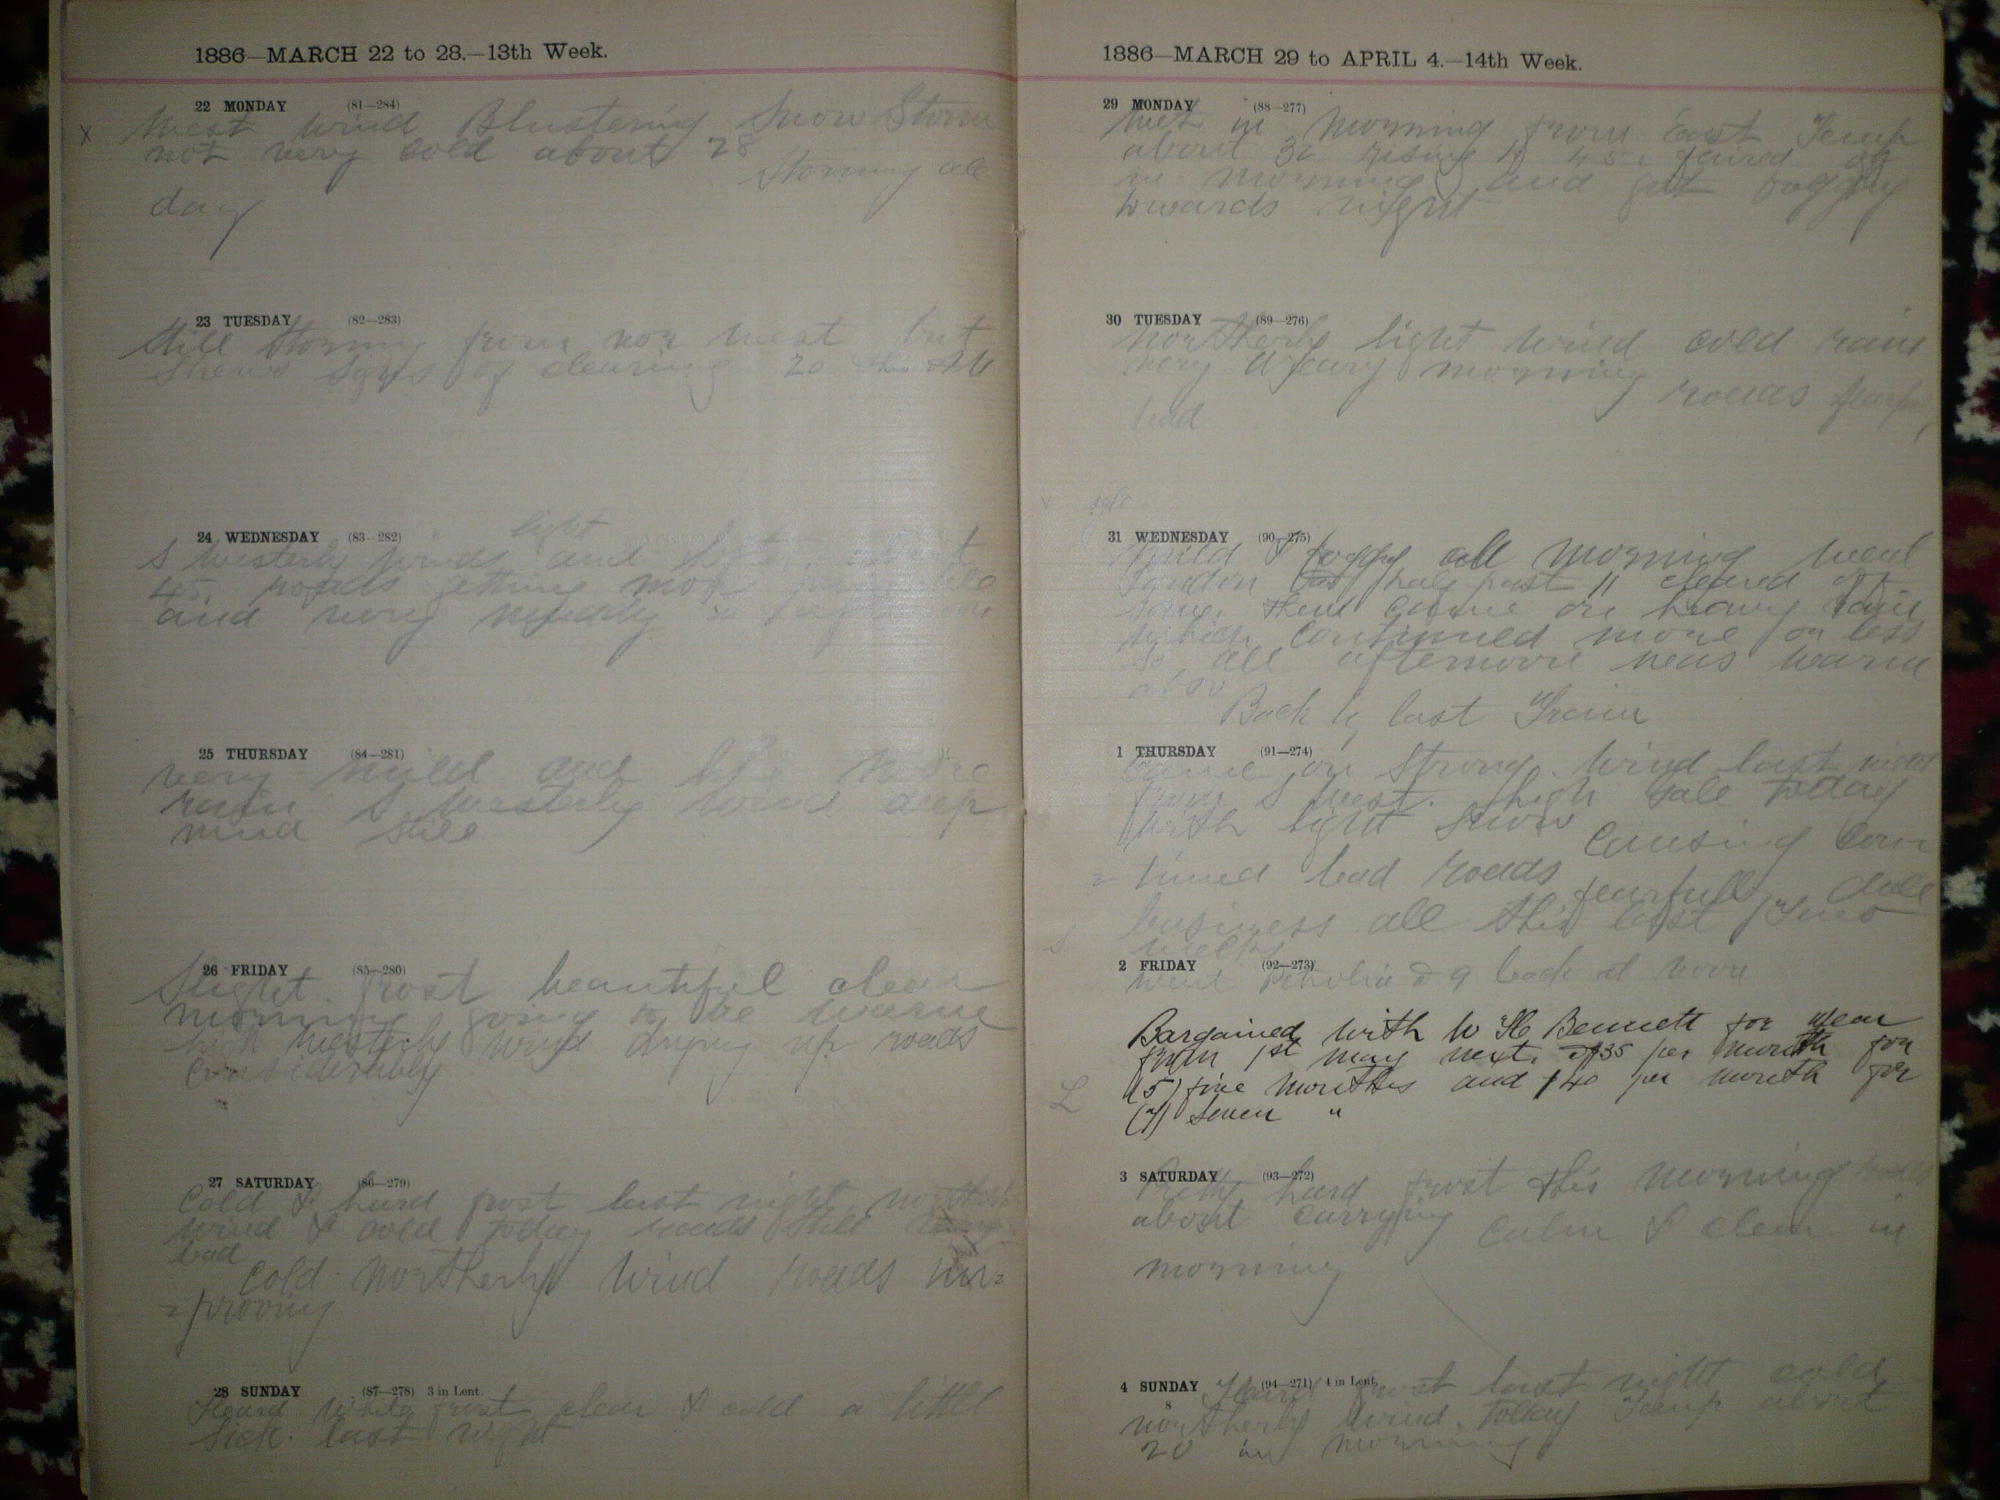 1886—MARCH 22 to 28.—13th Week.
22 MONDAY (81—284)
x West wind Blustering Snow Storm
not very cold about 28
Stormy all
day
23 TUESDAY (82—283)
Still Stormy from nor west but
Shews Signs of clearing 20
24 WEDNESDAY (83—282)
light
S Westerly winds and
45. roads getting
and very muddy
25 THURSDAY (84—281)
very mild and like more
rain S Westerly wind deep
mud still
26 FRIDAY (85—280)
Slight frost beautiful clear
morning going to be warm
high Westerly wind drying up roads
Considerably
27 SATURDAY (86—279)
Cold & hard frost last night
wind & cold today roads still
bad
Cold Northerly wind roads im=
=prooving
28 SUNDAY (87—278) 3 in Lent.
Hard white frost clear & cold a little
Sick. last night
1886—MARCH 29 to APRIL 4.—14th Week.
29 MONDAY (88—277)
Wet in Morning from East Temp
about 32 rising to 45. faired off
in morning and got foggy
towards night
30 TUESDAY (89—276)
Northerly light wind cold rain
very dreary morning
roads fearful
bad
31 WEDNESDAY (90—275)
Mild & foggy all morning went
London half past 11 cleared off
some then came on heavy rain
which continued more or less
so all afternoon was warm
also
Back by last Train
1 THURSDAY (91—274)
Came on Strong. Wind last night
from S West. high Gale today
With light Snow
Causing Con
=tinued bad roads
fearfully dull
business all this last Two
weeks
2 FRIDAY (92—273)
Went Petrolia & 9 back at noon
Bargained with W H Bennett for year
from 1st May next. $35 per month for
(5) five months and $40 per month for
(7) Seven "
3 SATURDAY (93—272)
Pretty hard frost this morning roads
about carrying
Calm & clear in
morning
4 SUNDAY (94—271) 4 in Lent.
Hard frost last night cold
northerly wind. Today Temp about
20 in morning